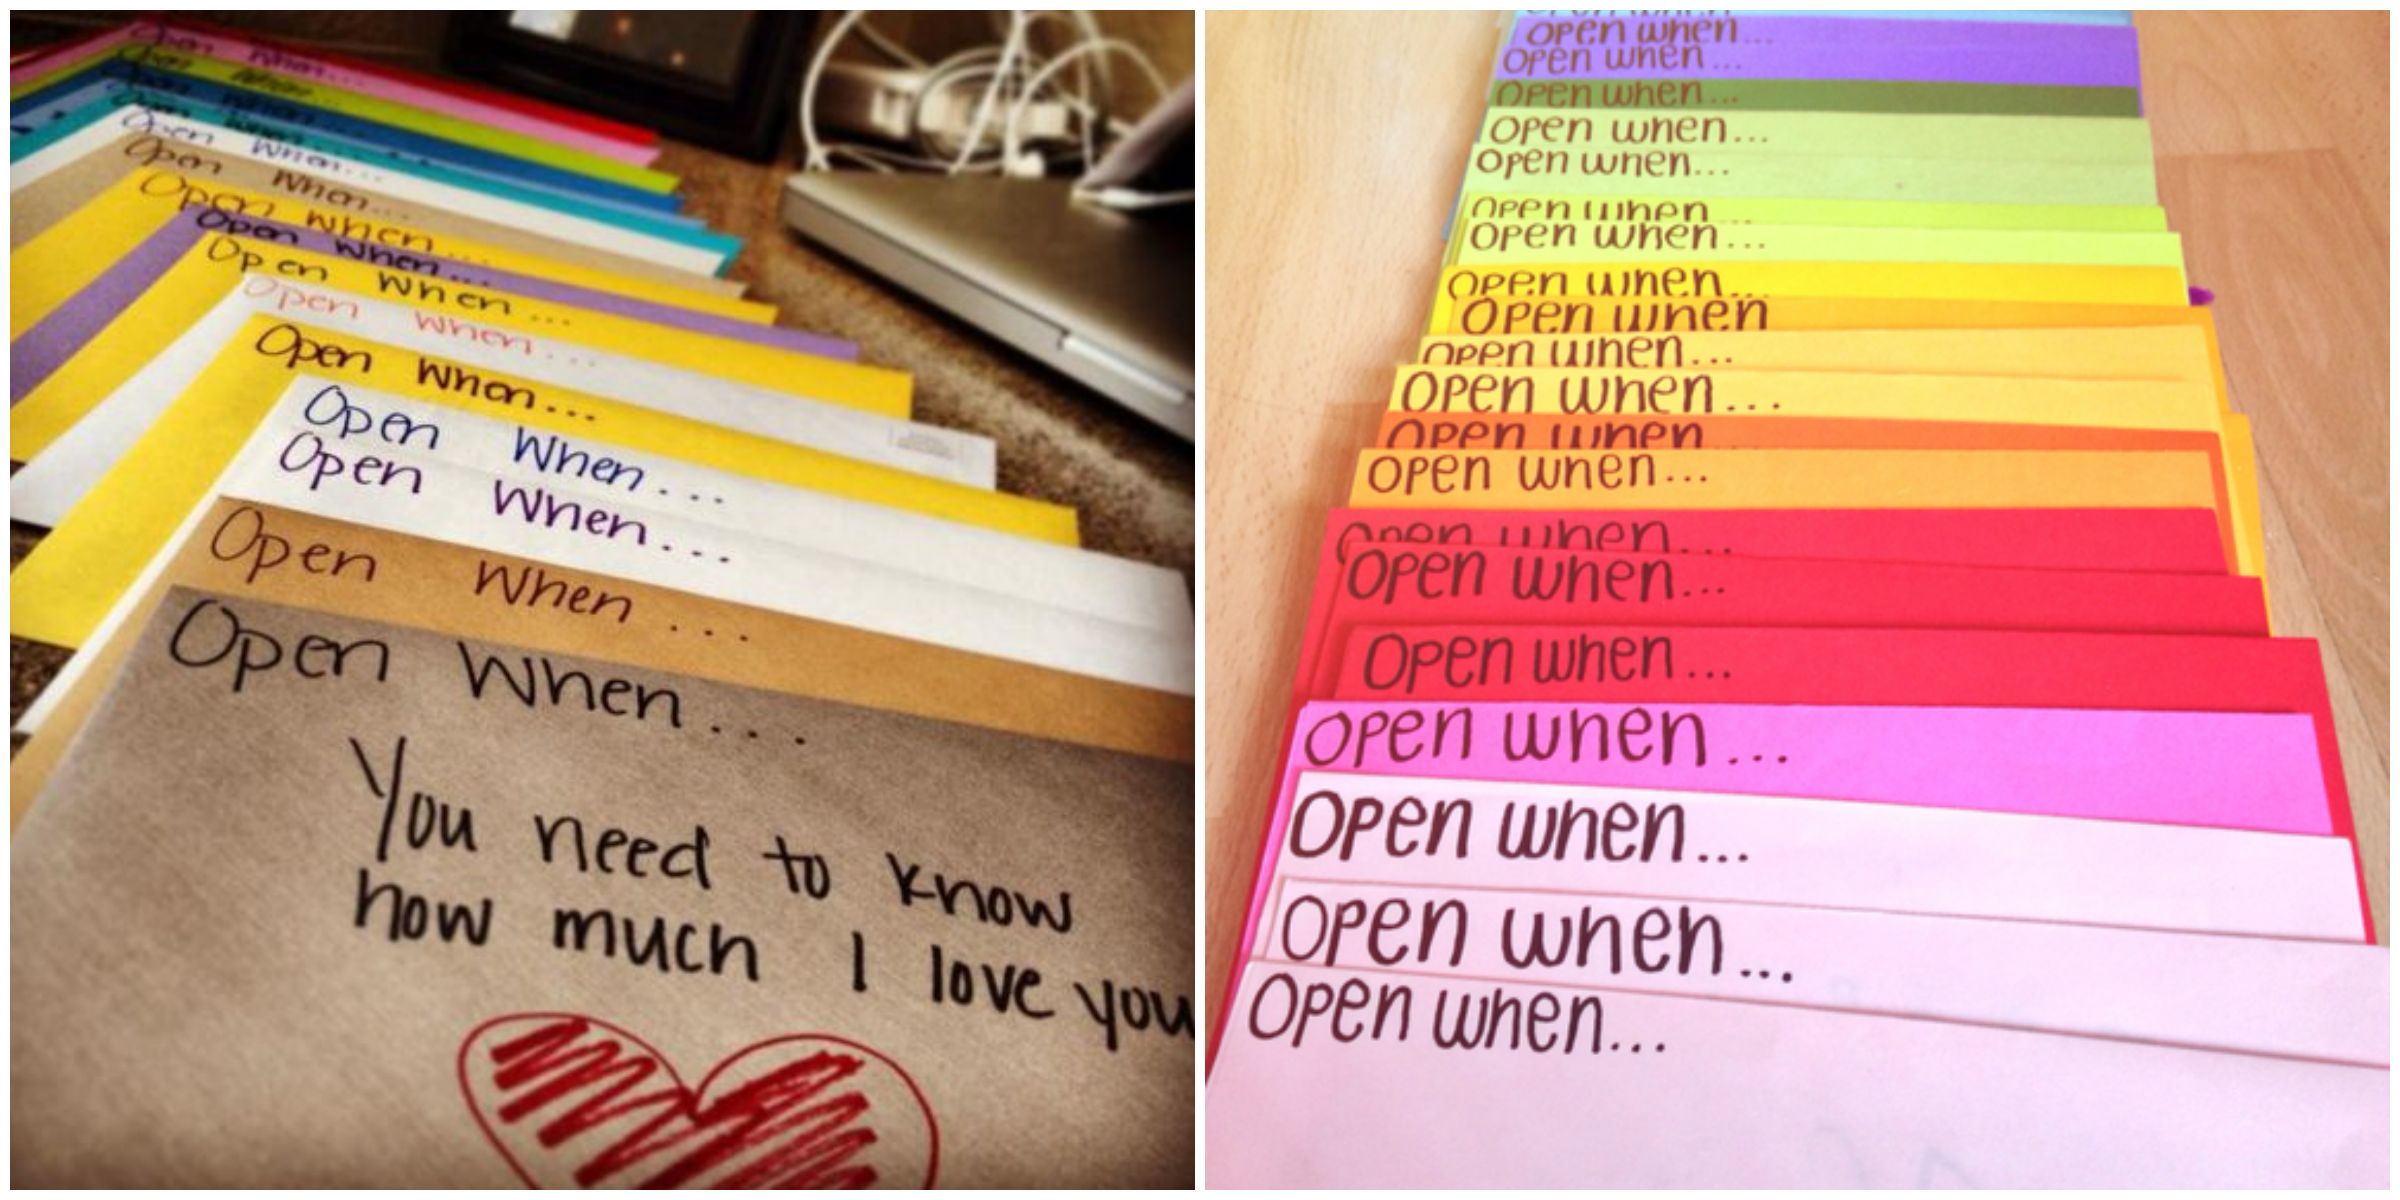 Open When...
Open When...
Open When...
Open When...
Open When...
Open When...
Open When...
Open When...
Open When...
Open When...
Open When...
Open When...
Open When...
Open When...
Open When...
You need to know
how much I love you
Open when...
Open when...
Open when...
Open when...
Open when...
Open when...
Open when...
Open when...
Open when
Open when...
Open when...
Open when...
Open when...
Open when...
Open when...
Open when...
Open when...
Open when...
Open when...
Open when...